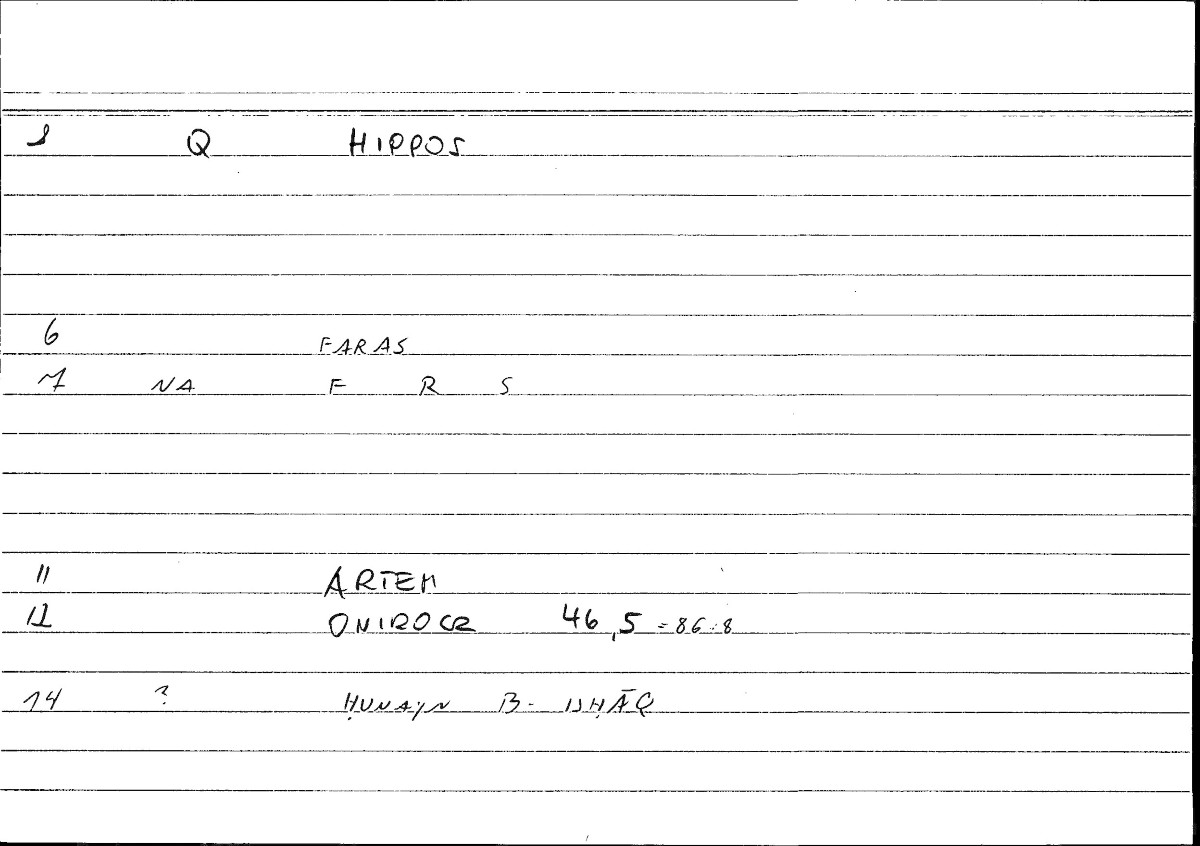 1 Q HIPPOS
6 FARAS
7 NA F R S
11 ARTEM
12 ONIROCR 46,5 = 86:8
14 ? ḤUNAYN B. ISḤĀQ